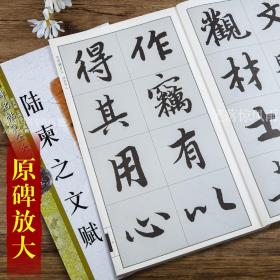 文
觀材士
作竊有以
得其用心
陆柬之文赋
原碑放大